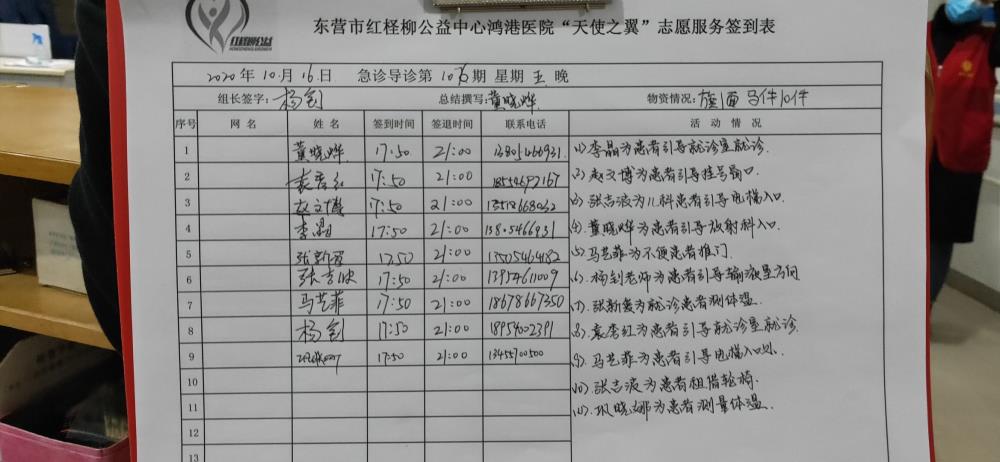 红柽柳公益
东营市红柽柳公益中心鸿港医院“天使之翼”志愿服务签到表
2020年10月16日 急诊导诊第 期 星期五晚
组长签字:杨剑 总结撰写:黄晓烨 物资情况: 马件10件
序号 网名 姓名 签到时间 签退时间 联系电话 活动情况
1 黄晓烨 17:50 21:00 13805466931
2 17:50 21:00
3 赵文博 17:50 21:00
4 李晶 17:50 21:00
5 张新爱 17:50 21:00 13505464182
6 张志波 17:50 21:00
7 马艺菲 17:50 21:00 18678667350
8 杨剑 17:50 21:00 18954002391
9 17:50 21:00 13455700500
10
11
12
13
(1)李晶为患者引导就诊室就诊.
(2)赵文博为患者引导挂号窗口.
(3)张志波为儿科患者引导电梯入口
(4)黄晓烨为患者引导放射科入口.
(5)马艺菲为不便患者推门
(6)杨剑老师为患者引导输液室方向
(7)张新爱为就诊患者测体温.
(8)袁秀红为患者引导就诊室就诊.
(9)马艺菲为患者引导电梯入口处.
(10)张志波为患者租借轮椅.
(11)巩晓娜为患者测量体温.